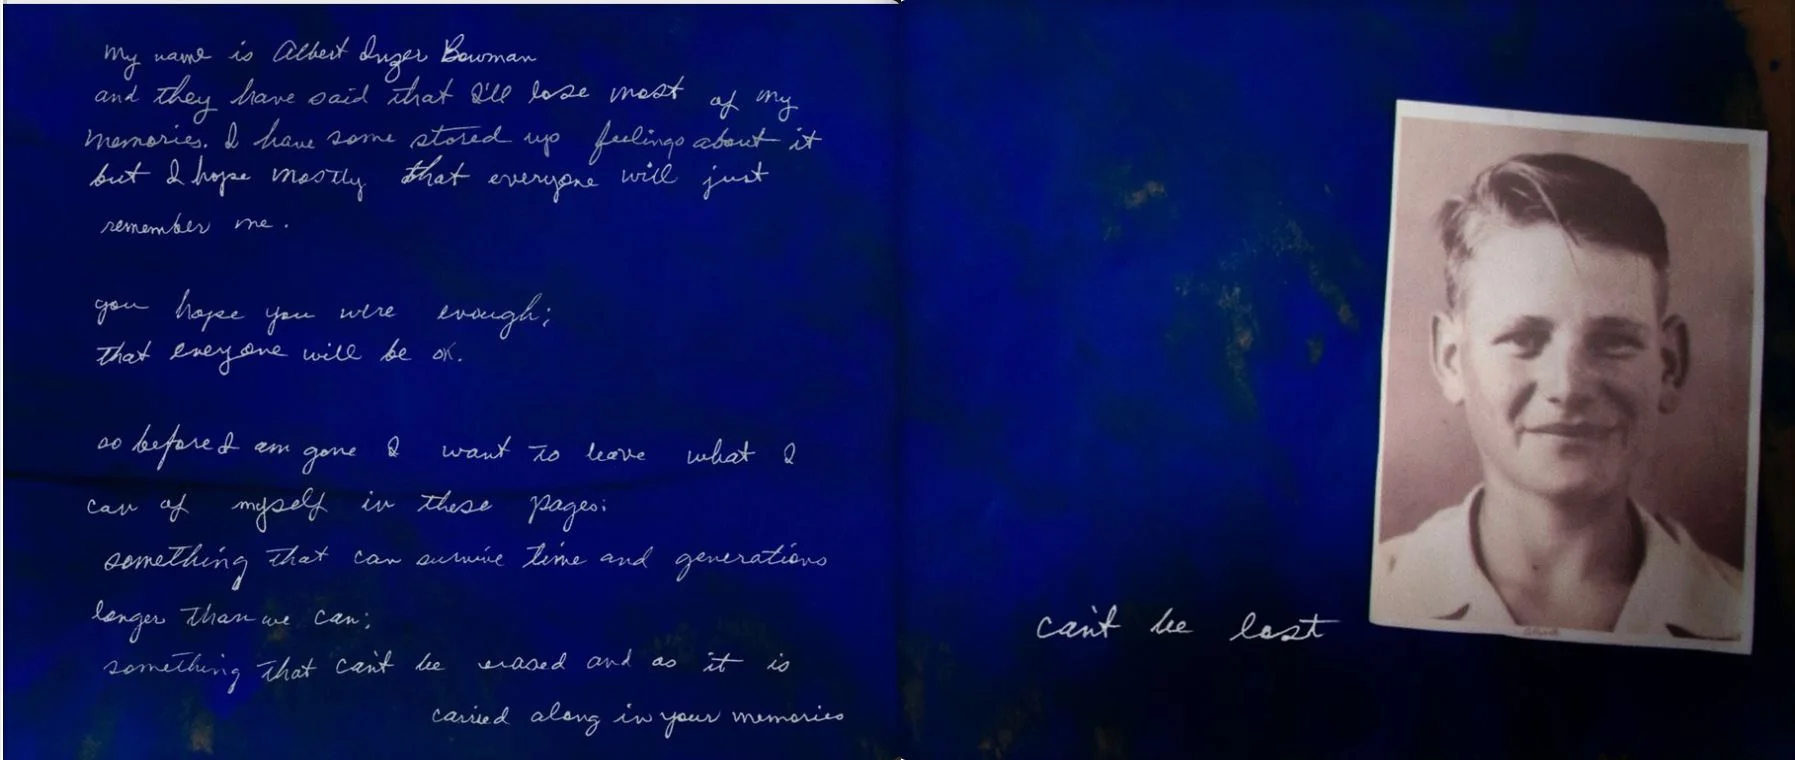 My name is Albert Inzer Bowman
and they have said that I'll lose most of my
memories. I have some stored up feelings about it
but I hope mostly that everyone will just
remember me.
you hope you were enough;
that everyone will be ok.
so before I am gone I want to leave what I
can of myself in these pages:
something that can survive time and generations
longer than we can;
something that can't be erased and as it is
carried along in your memories
can't be lost